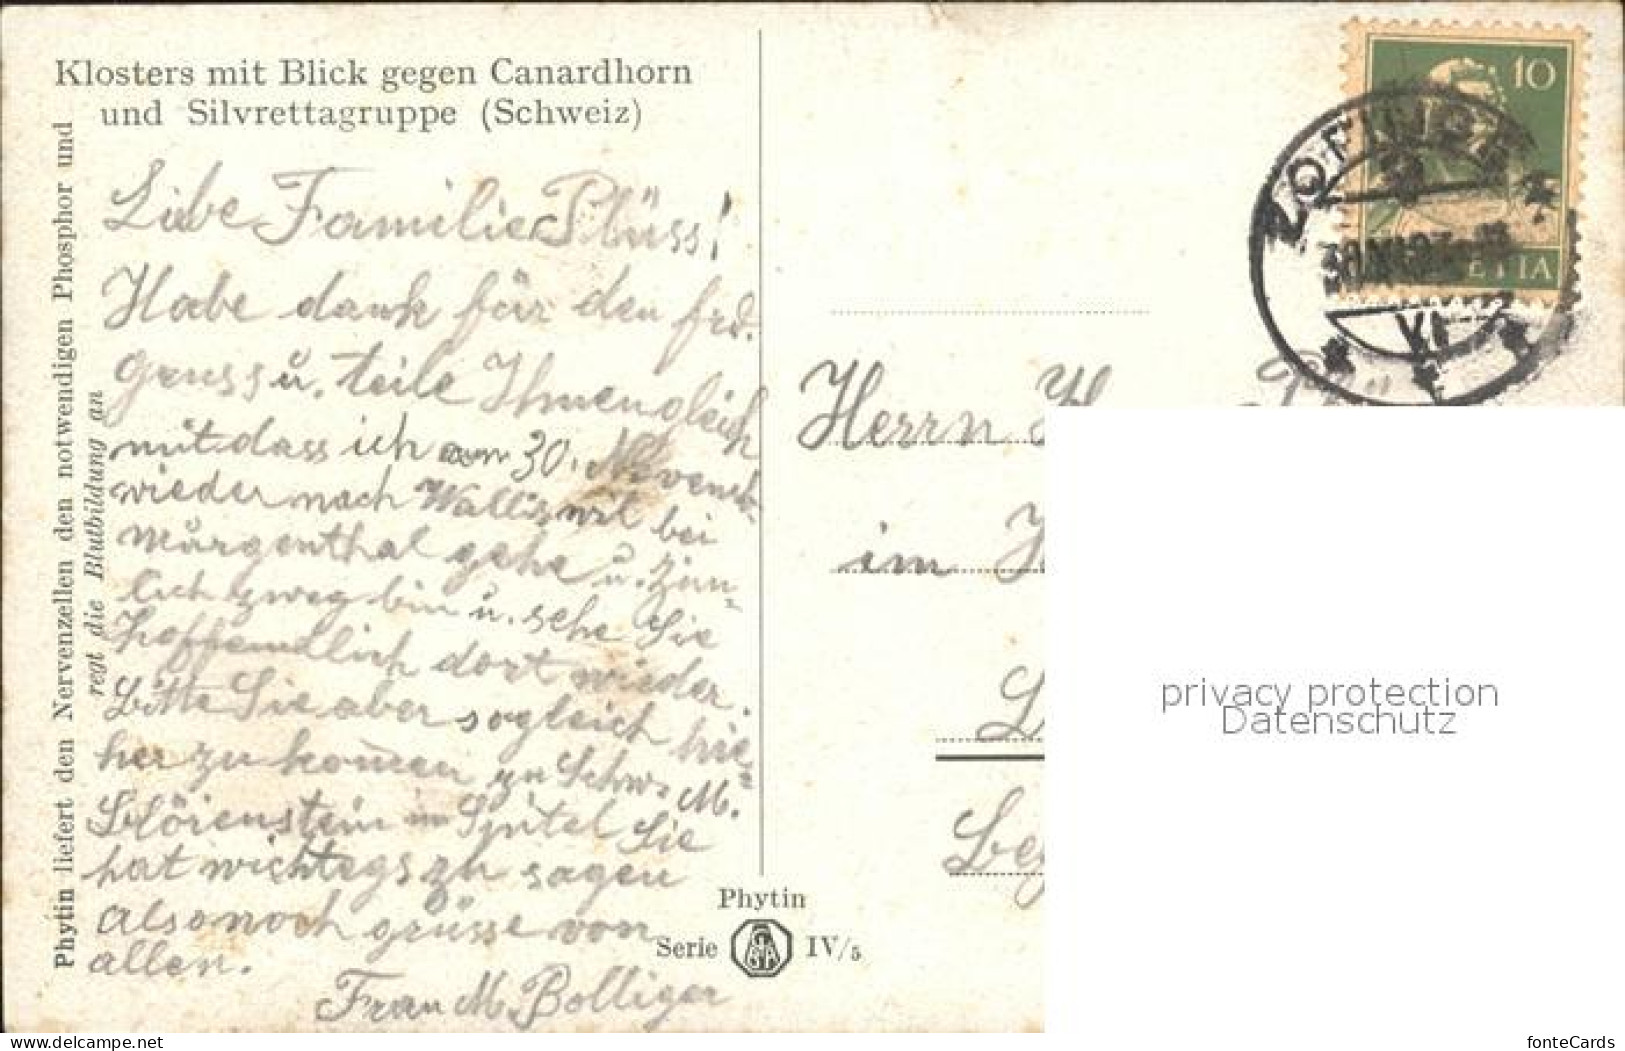 Klosters mit Blick gegen Canardhorn
und Silvrettagruppe (Schweiz)
Phytin liefert den Nervenzellen den notwendigen Phosphor und
regt die Blutbildung an
Libe Familie Plüss!
Habe dank für den frd.
gruss u. teile Ihnen gleich
mit dass ich am 30. Novemb.
wieder nach Walliswil bei
Murgenthal gehe u. zim-
lich zweg bin u. sehe Sie
hoffendlich dort wieder.
Bitte Sie aber sogleich hie-
her zu komen zu Schw. M.
im Spitel Sie
hat wichtegs zu sagen
also noch grüsse von
allen.
Frau M. Bolliger
Phytin
Serie IV/5
10
HELVETIA
ZOFINGEN
VI
Herrn
im
privacy protection
Datenschutz
www.delcampe.net
fonteCards